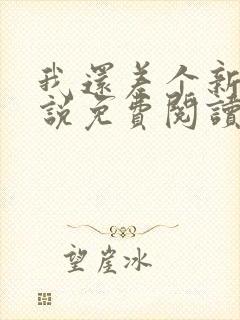 我還差个新
說免費閱讀
望崖冰